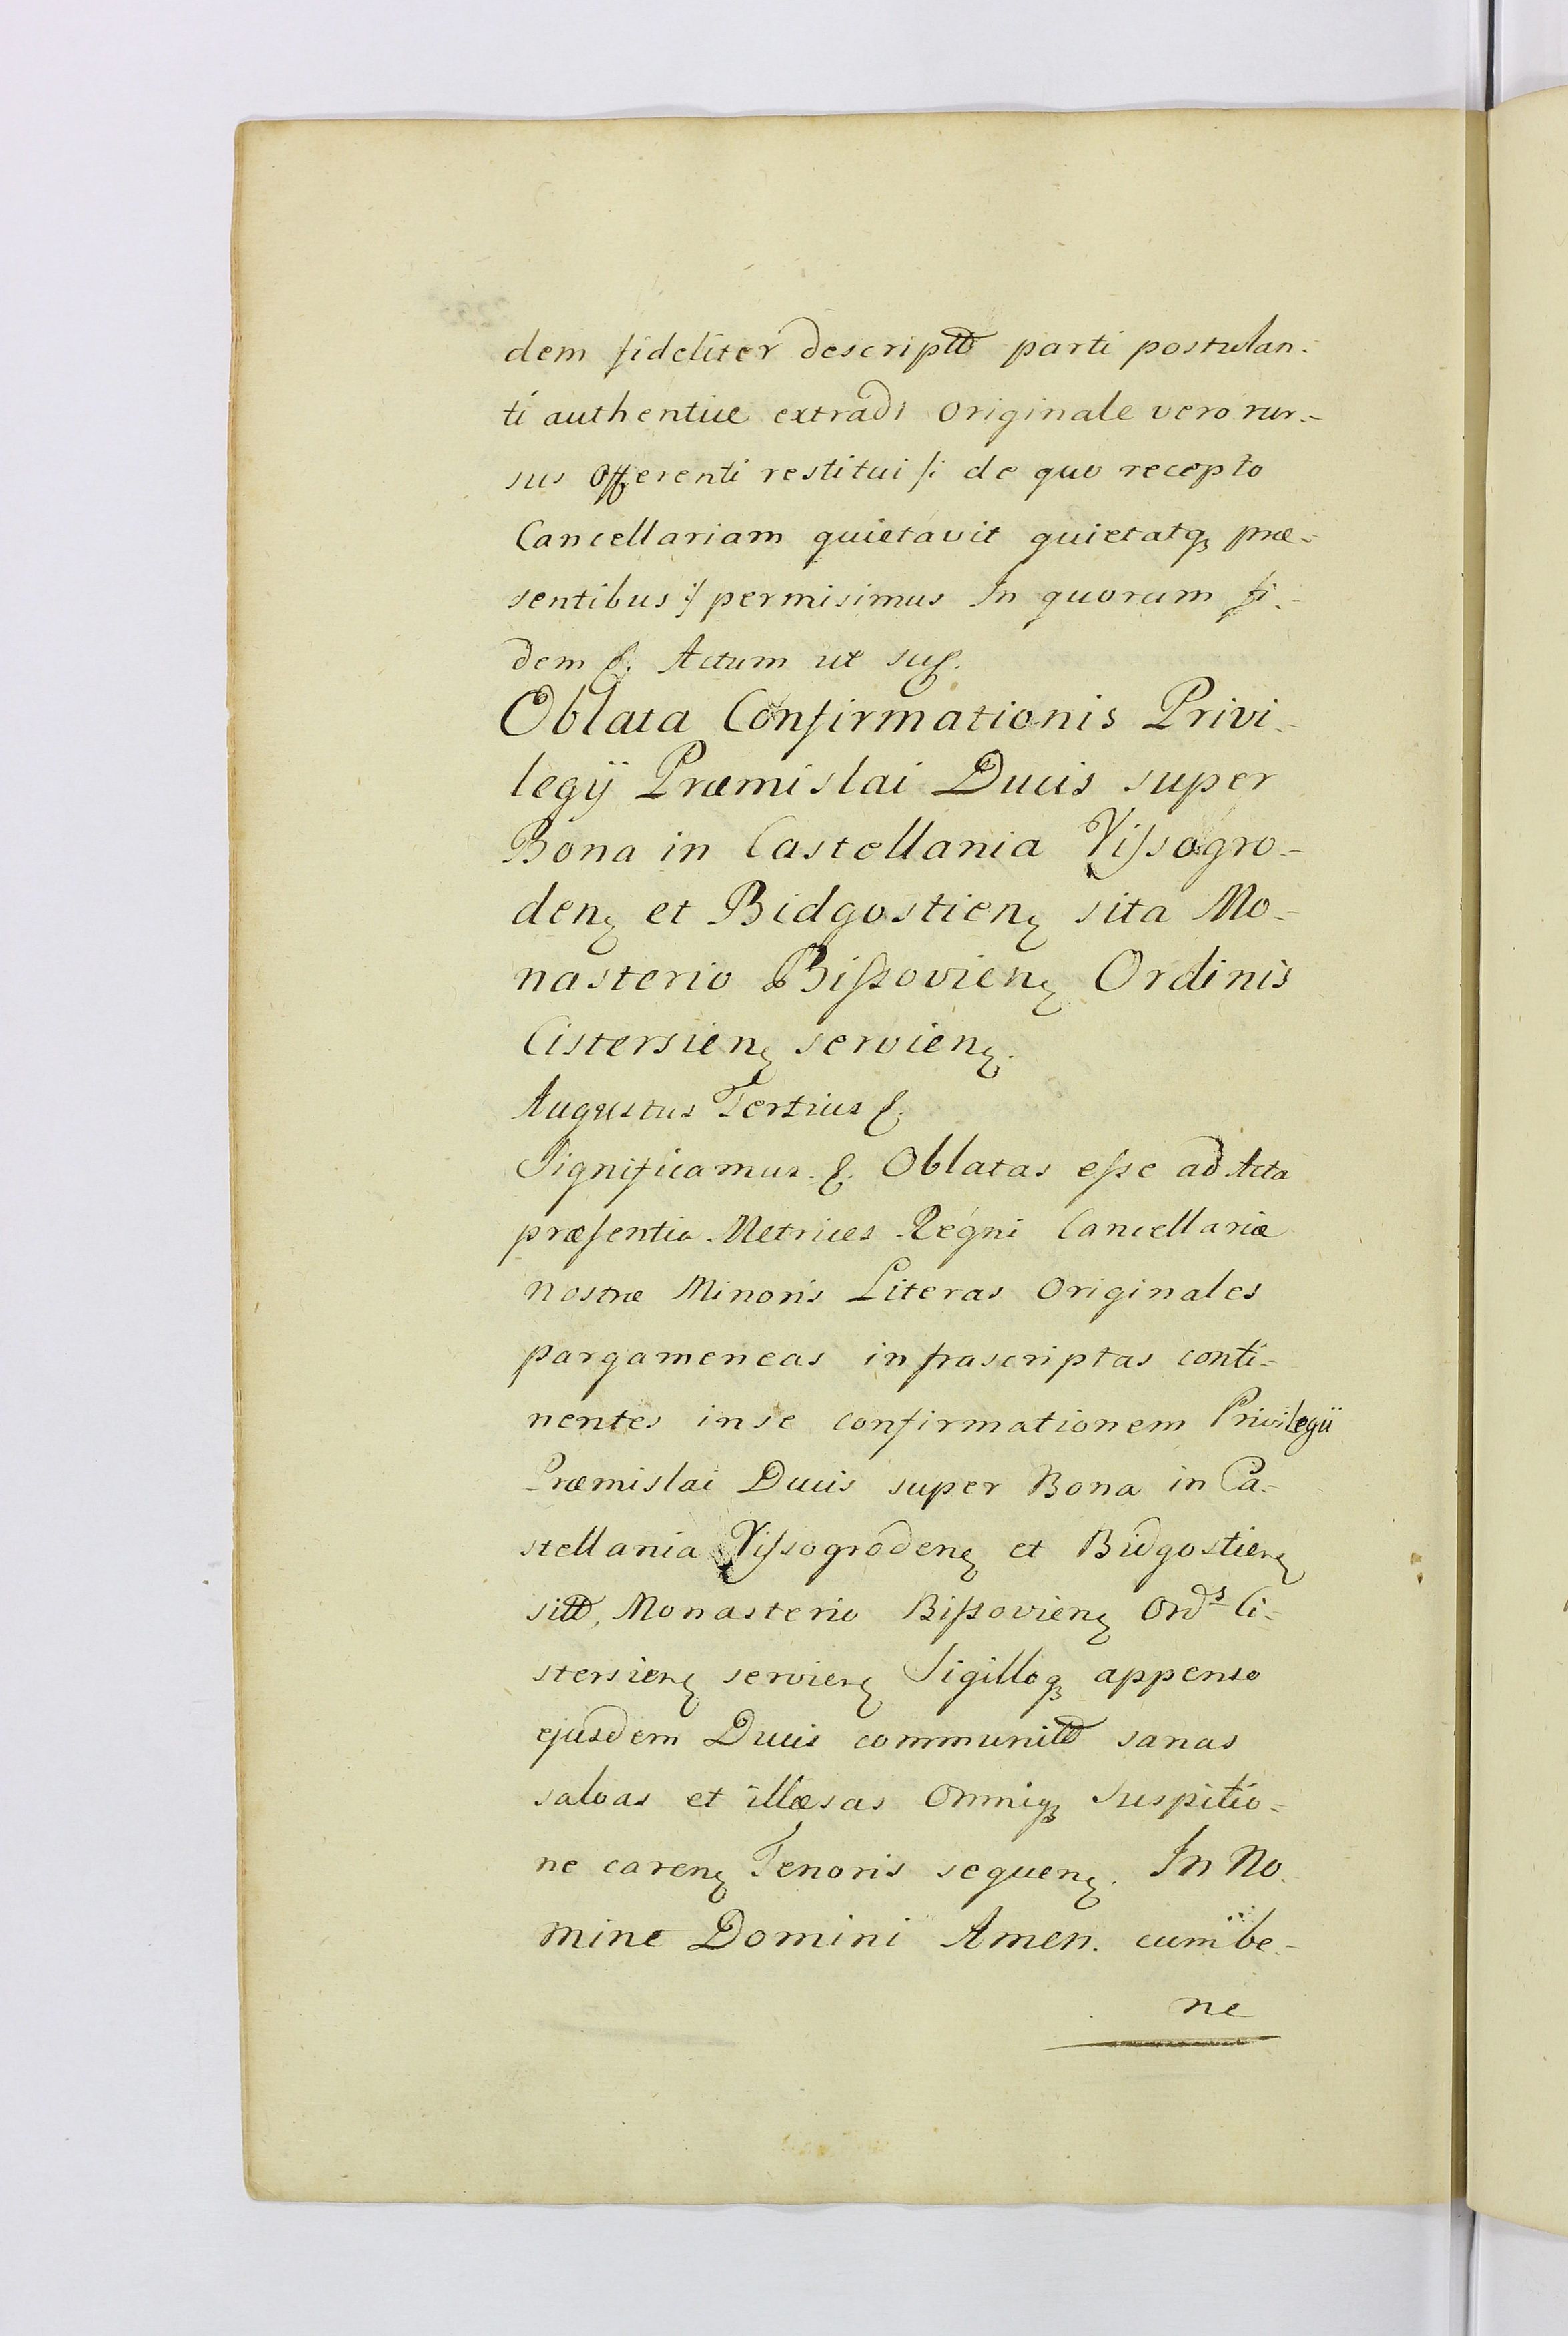 dem fideliter descriptū parti postulan-
ti authentice extradi originale vero rur-
sus Offerenti restitui /: de quo recepto
Cancellariam quietavit quietatq; præ-
sentibus :/ permisimus In quorum fi-
dem &. Actum ut sup.
Oblata Confirmationis Privi-
legÿ Præmislai Ducis super
Bona in Castellania Viſsogro-
denę et Bidgostienę sita Mo-
nasterio Biſzovienę Ordinis
Cistersienę servienę.
Augustus Tertius &.
Significamus. &. Oblatas eſse ad Acta
præſentia Metrices Regni Cancellariæ
nostræ Minoris Literas Originales
pargameneas infrascriptas conti-
nentes in se confirmationem Privilegii
Præmislai Ducis super Bona in Ca-
stellania Viſsogrodenę et Bidgostienę
sitt, Monasterio Biſzovienę Ordˢ Ci-
stersienę servienę Sigilloq; appenso
ejusdem Ducis communitt sanas
salvas et illæsas Omniq; Suspitio-
ne carenę Tenoris sequenę. In No-
mine Domini Amen. cum be-
ne